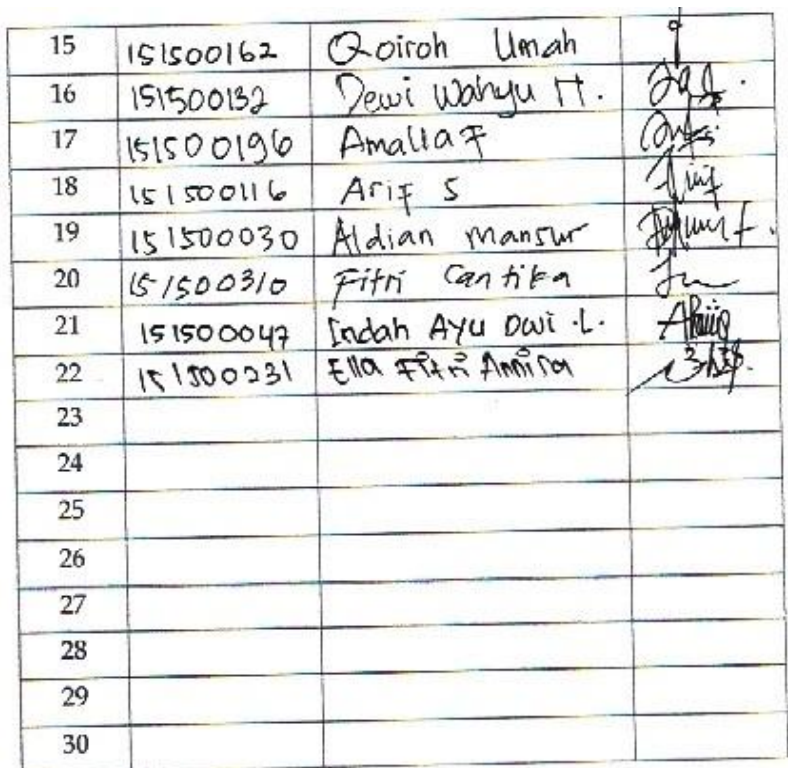 15 151500162 Qoiroh Umah
16 151500132 Dewi Wahyu H.
17 151500196 Amalia F
18 151500116 Arif S
19 151500030 Aldian Mansur
20 151500310 Fitri Cantika
21 151500047 Indah Ayu Dwi .L.
22 151500231 Ella Fitri Annisa
23
24
25
26
27
28
29
30